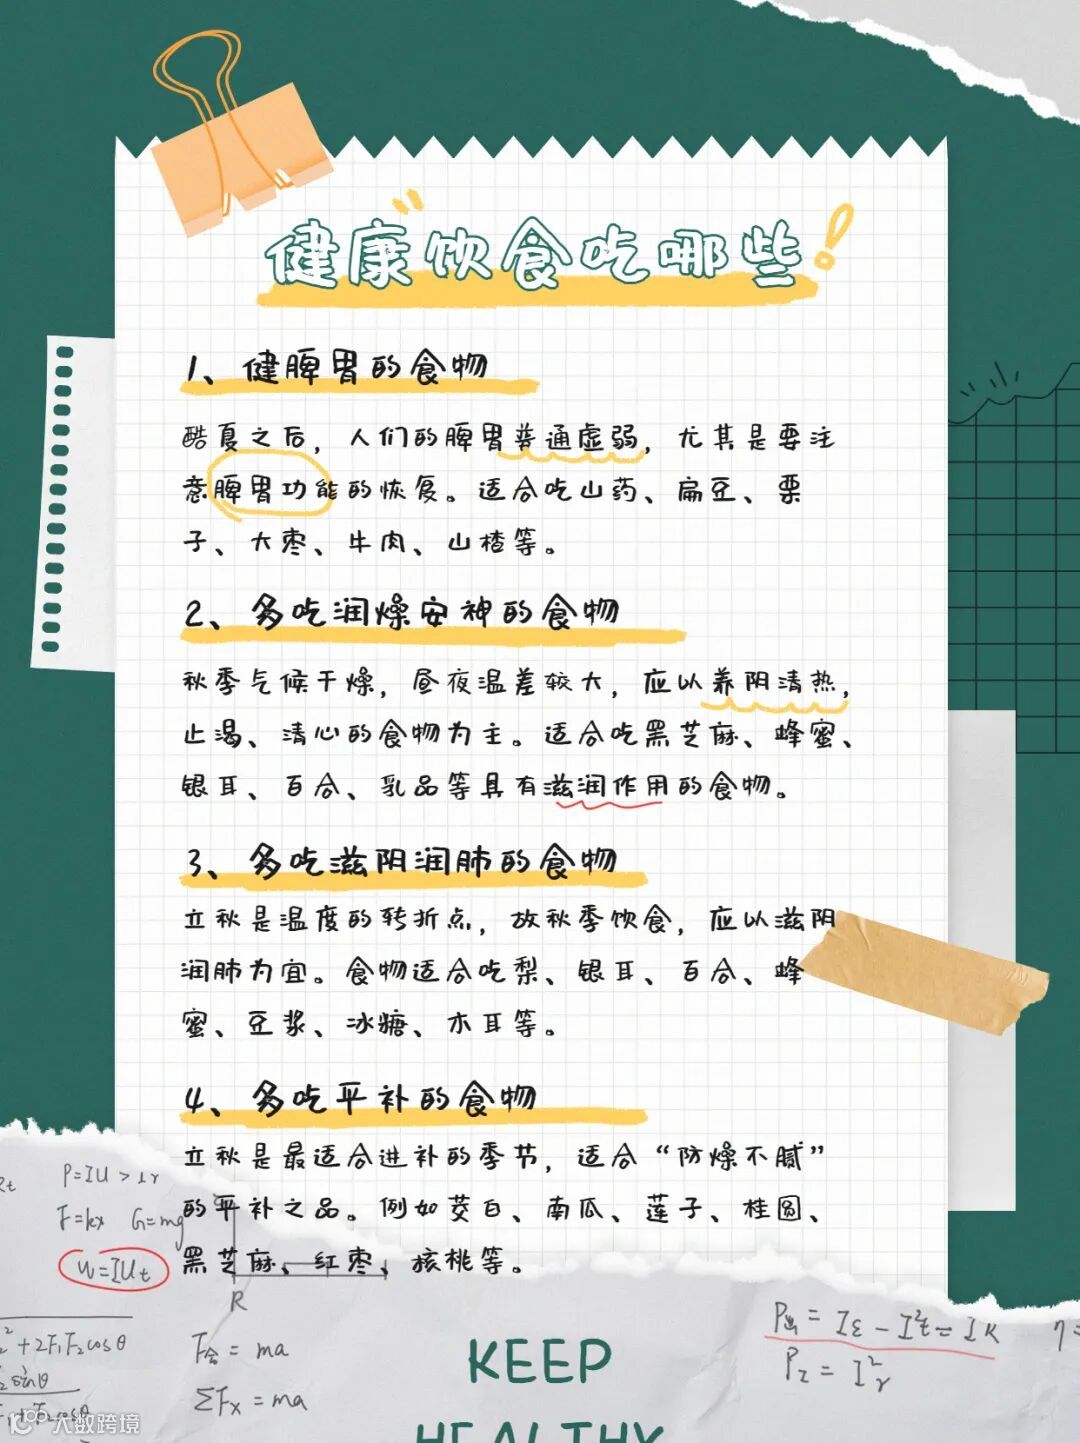 健康饮食吃哪些!
1、健脾胃的食物
酷夏之后，人们的脾胃普通虚弱，尤其是要注
意脾胃功能的恢复。适合吃山药、扁豆、栗
子、大枣、牛肉、山楂等。
2、多吃润燥安神的食物
秋季气候干燥，昼夜温差较大，应以养阴清热，
止渴、清心的食物为主。适合吃黑芝麻、蜂蜜、
银耳、百合、乳品等具有滋润作用的食物。
3、多吃滋阴润肺的食物
立秋是温度的转折点，故秋季饮食，应以滋阴
润肺为宜。食物适合吃梨、银耳、百合、蜂
蜜、豆浆、冰糖、木耳等。
4、多吃平补的食物
立秋是最适合进补的季节，适合“防燥不腻”
的平补之品。例如茭白、南瓜、莲子、桂圆、
黑芝麻、红枣、核桃等。
P=IU>Ir
F=kx G=mg
W=IUt
R
+2F₁F₂cosθ
F合=ma
ΣFx=ma
P出=Iε-I²t=IR
P₂=I²r
KEEP
HEALTHY
大数跨境